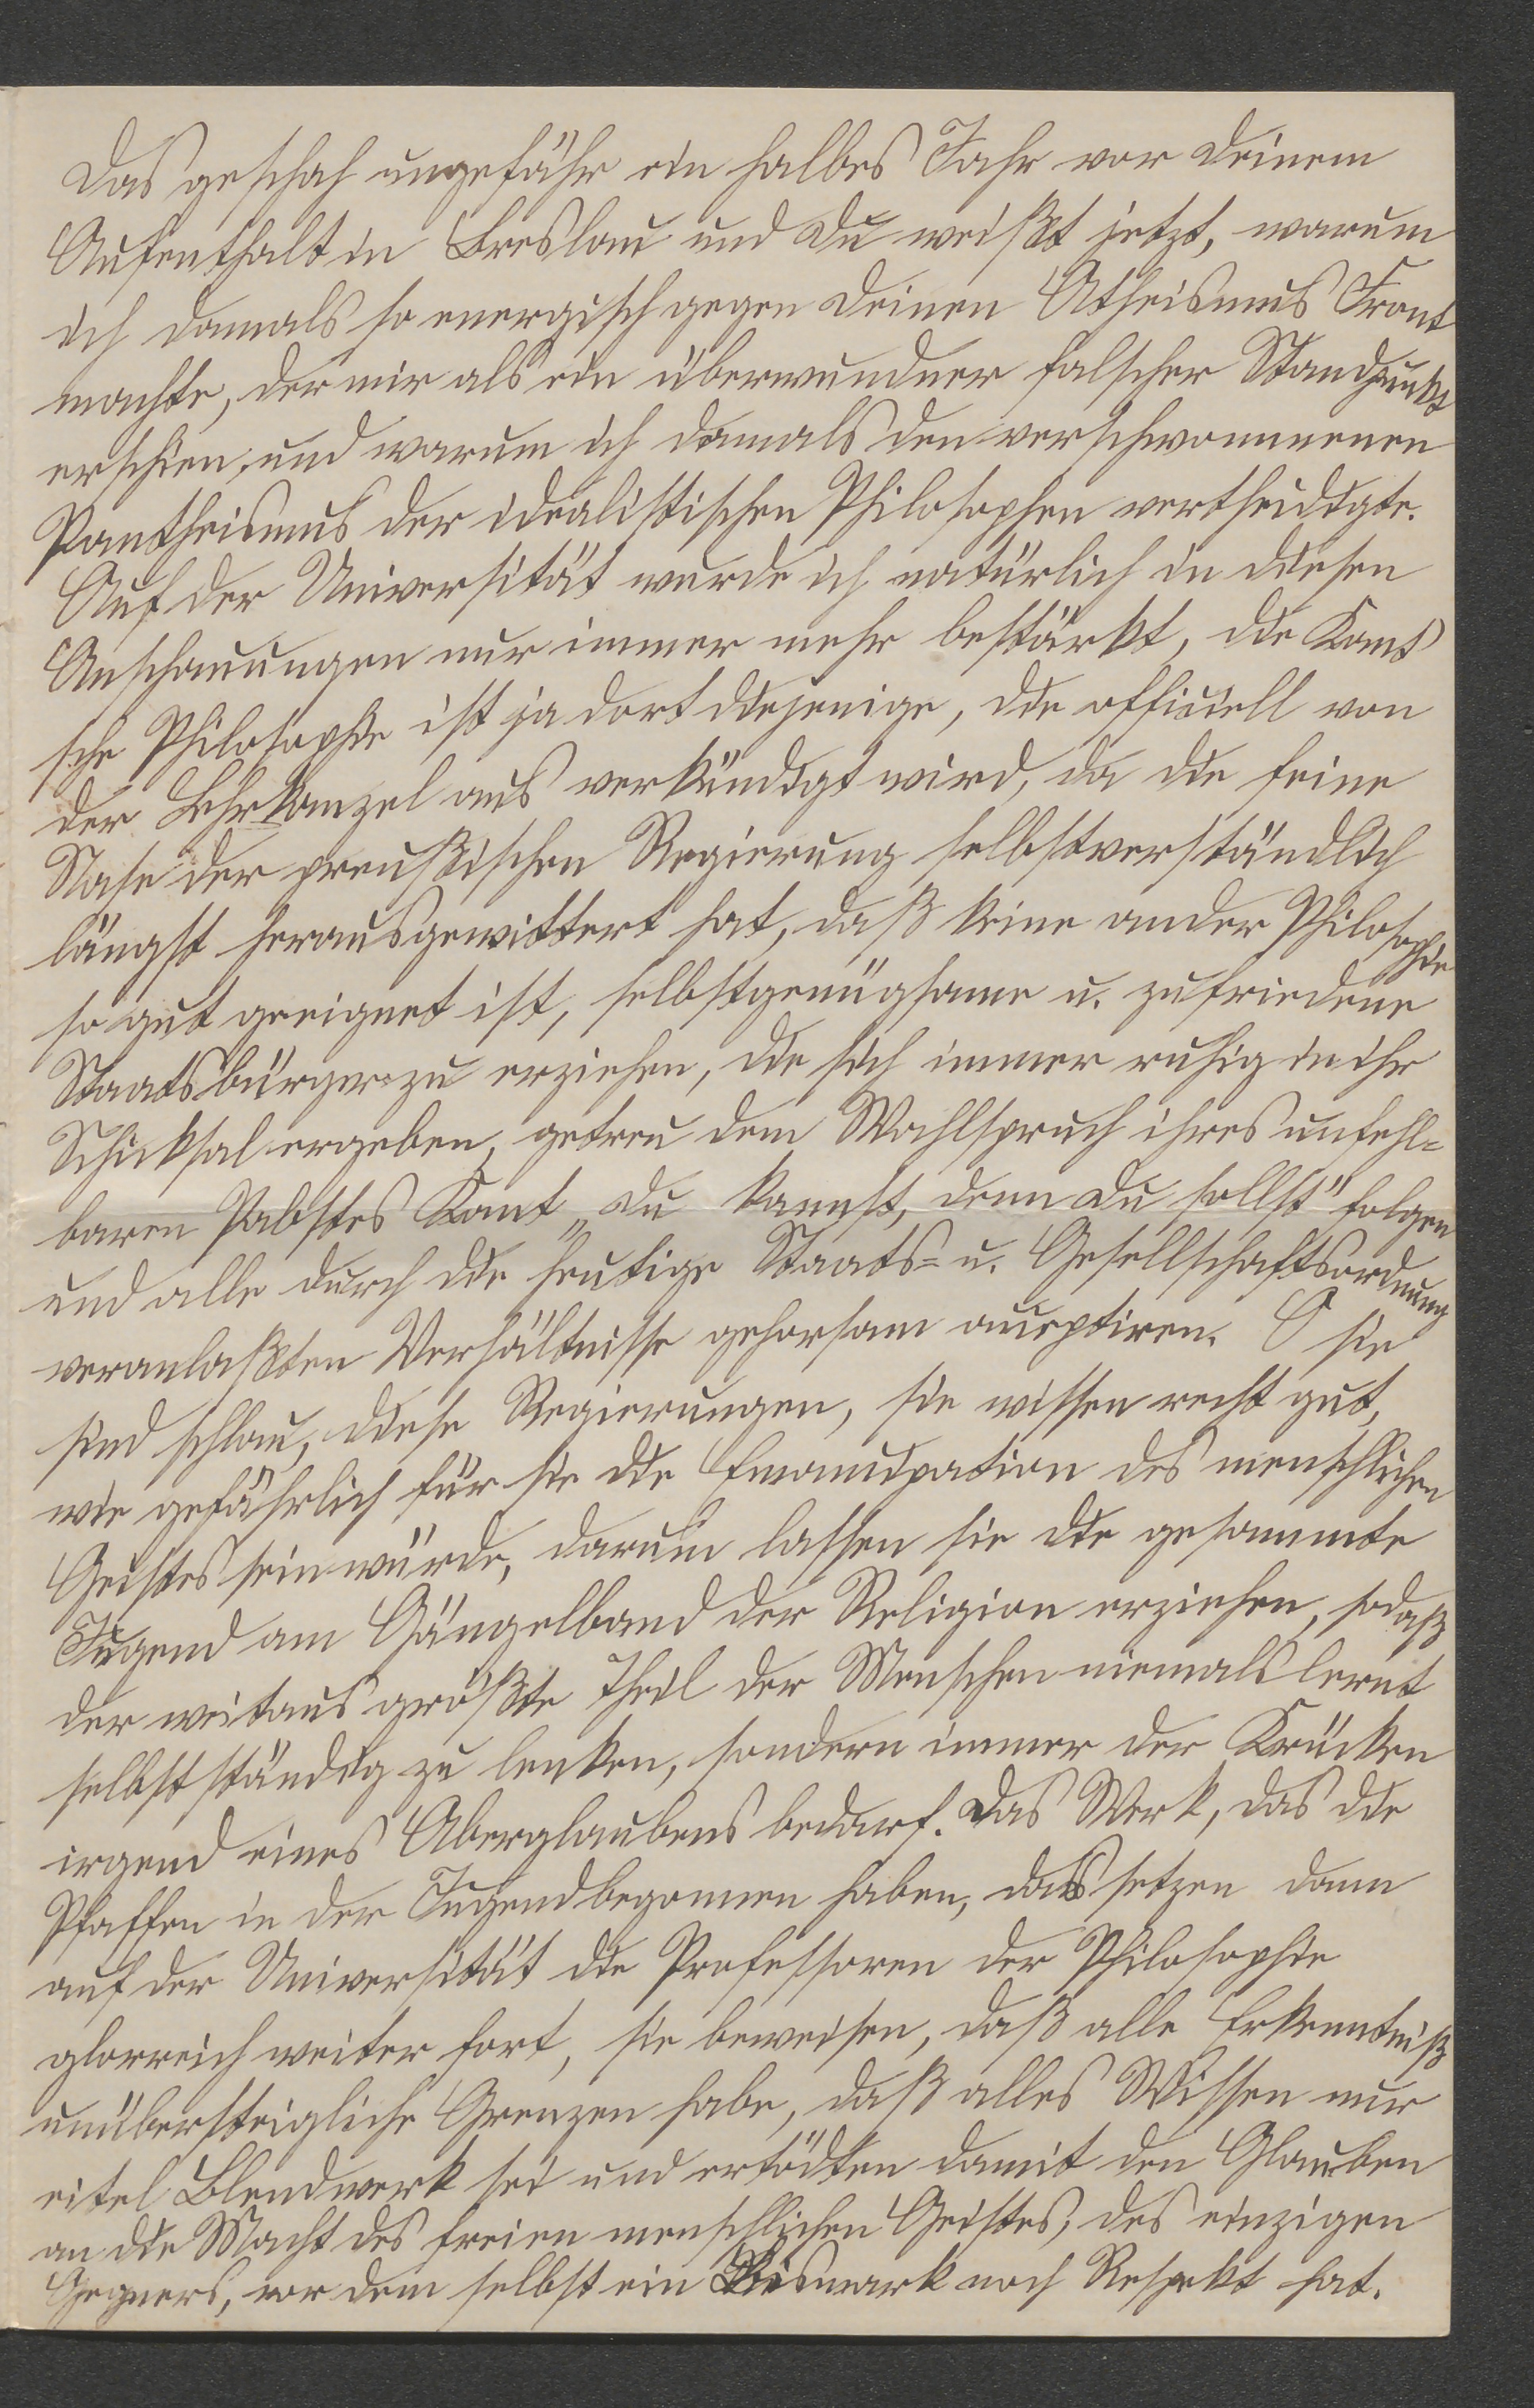 Das geschah ungefähr ein halbes Jahr vor Deinem
Aufenthalt in Breslau und Du weißt jetzt, warum
ich damals so energisch gegen Deinen Atheismus Front
machte, der mir als ein überwundner falscher Standpunkt
erschien, und warum ich damals den verschwommenen
Pantheismus der idealistischen Philosophen vertheidigte.
Auf der Universität wurde ich natürlich in diesen
Anschauungen nur immer mehr bestärkt, die Kant'
sche Philosophie ist ja dort diejenige, die officiell von
der Lehrkanzel aus verkündigt wird, da die feine
Nase der preußischen Regierung selbstverständlich
längst herausgewittert hat, daß keine ander Philosophie
so gut geeignet ist, selbstgenügsame u. zufriedene
Staatsbürger zu erziehen, die sich immer ruhig in ihr
Schicksal ergeben, getreu dem Wahlspruch ihres unfehl=
baren Pabstes Kant „Du kannst, denn Du sollst" folgen
und alle durch die heutige Staats= u. Gesellschaftsordnung
veranlaßten Verhältnisse gehorsam acceptiren. O sie
sind schlau, diese Regierungen, sie wissen recht gut,
wie gefährlich für sie die Emancipation des menschlichen
Geistes sein würde, darum lassen sie die gesammte
Jugend am Gängelband der Religion erziehen, sodaß
der weitaus größte Theil der Menschen niemals lernt
selbstständig zu lenken, sondern immer der Krücken
irgend eines Aberglaubens bedarf. Das Werk, das die
Pfaffen in der Jugend begonnen haben, das setzen dann
auf der Universität die Professoren der Philosophie
glorreich weiter fort, sie beweisen, daß alle Erkenntniß
unübersteigliche Grenzen habe, daß alles Wissen nur
eitel Blendwerk sei und ertödten damit den Glauben
an die Macht des freien menschlichen Geistes, des einzigen
Gegners, vor dem selbst ein Bismark noch Respekt hat.